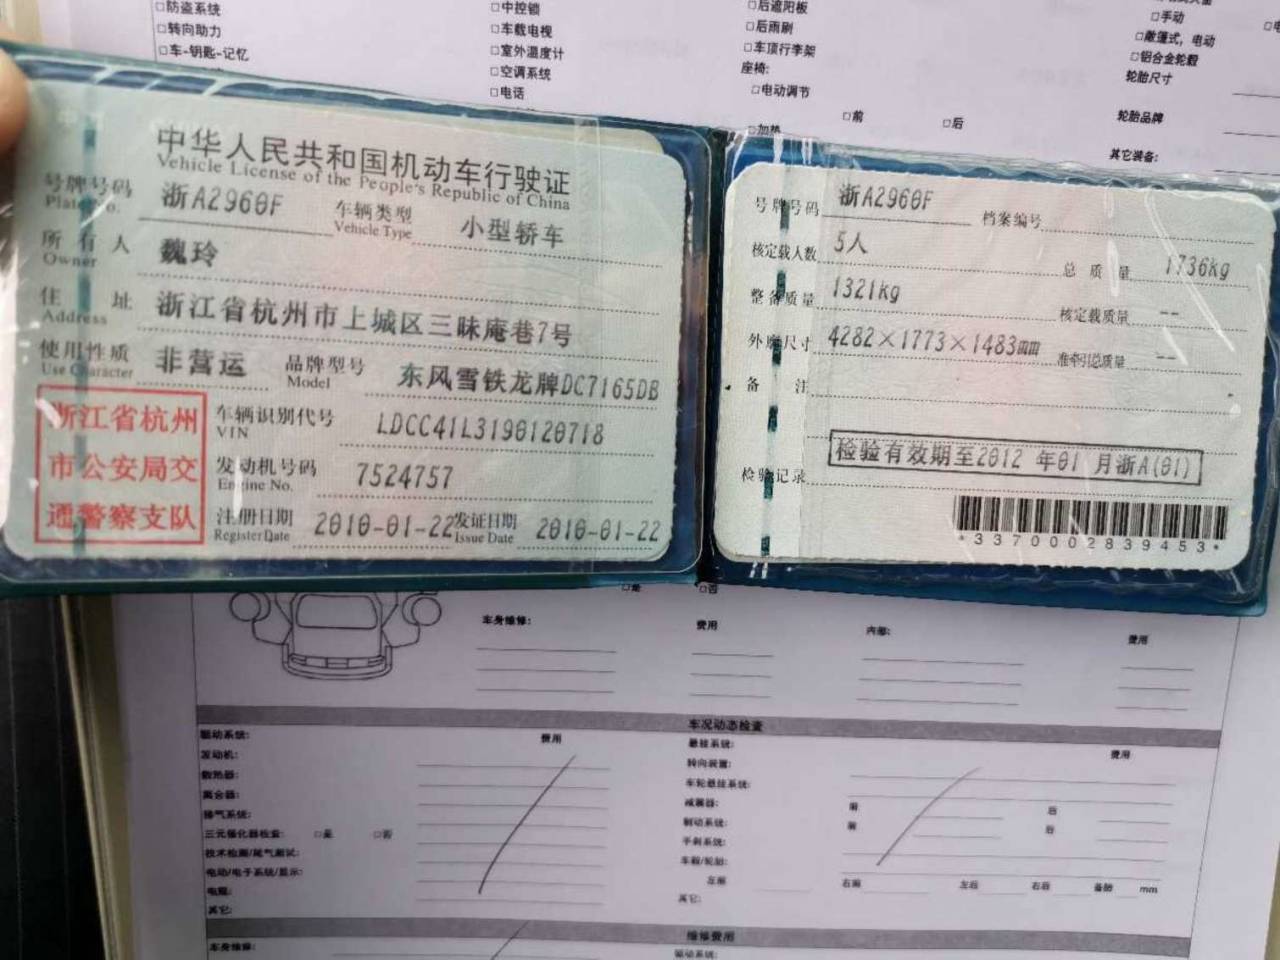 □防盗系统
□转向助力
□车-钥匙-记忆
□中控锁
□车载电视
□室外温度计
□空调系统
□电话
□后遮阳板
□后雨刷
□车顶行李架
座椅:
□电动调节
□加热
□前 □后
□手动
□敞篷式, 电动
□铝合金轮毂
轮胎尺寸
轮胎品牌
其它装备:
中华人民共和国机动车行驶证
Vehicle License of the People's Republic of China
号牌号码 浙A2960F 车辆类型 小型轿车
Plate No. Vehicle Type
所有人 魏玲
Owner
住址 浙江省杭州市上城区三昧庵巷7号
Address
使用性质 非营运 品牌型号 东风雪铁龙牌DC7165DB
Use Character Model
浙江省杭州
市公安局交
通警察支队
车辆识别代号 LDCC41L3190120718
VIN
发动机号码 7524757
Engine No.
注册日期 2010-01-22 发证日期 2010-01-22
Register Date Issue Date
号牌号码 浙A2960F 档案编号
核定载人数 5人 总质量 1736kg
整备质量 1321kg 核定载质量 --
外廓尺寸 4282×1773×1483mm 准牵引总质量 --
备注
检验记录 检验有效期至2012 年01 月浙A(01)
*3370002839453*
□是 □否
车身维修: 费用 内部: 费用
车况动态检查
驱动系统: 费用
发动机:
散热器:
离合器:
排气系统:
三元催化器检查: □是 □否
技术检测/尾气测试:
电动/电子系统/显示:
电瓶:
其它:
悬挂系统: 费用
转向装置:
车轮悬挂系统:
减震器: 前 后
制动系统: 前 后
手刹系统:
车毂/轮胎:
左前 右前 左后 右后 备胎 mm
其它:
维修费用
车身维修: 驱动系统: